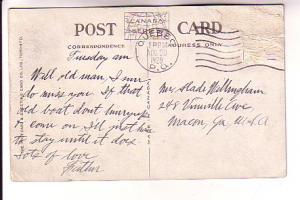 POST CARD
CANADA
CORRESPONDENCE
ADDRESS ONLY
QUEBEC
P.Q.
Tuesday am
Well old man, I sure
do miss you. If that
old boat don't hurry &
come on, I'll just have
to stay until it does
Lots of love
Father
Mr. Slade Wellingham
248 Vineville Ave
Macon, Ga U.S.A